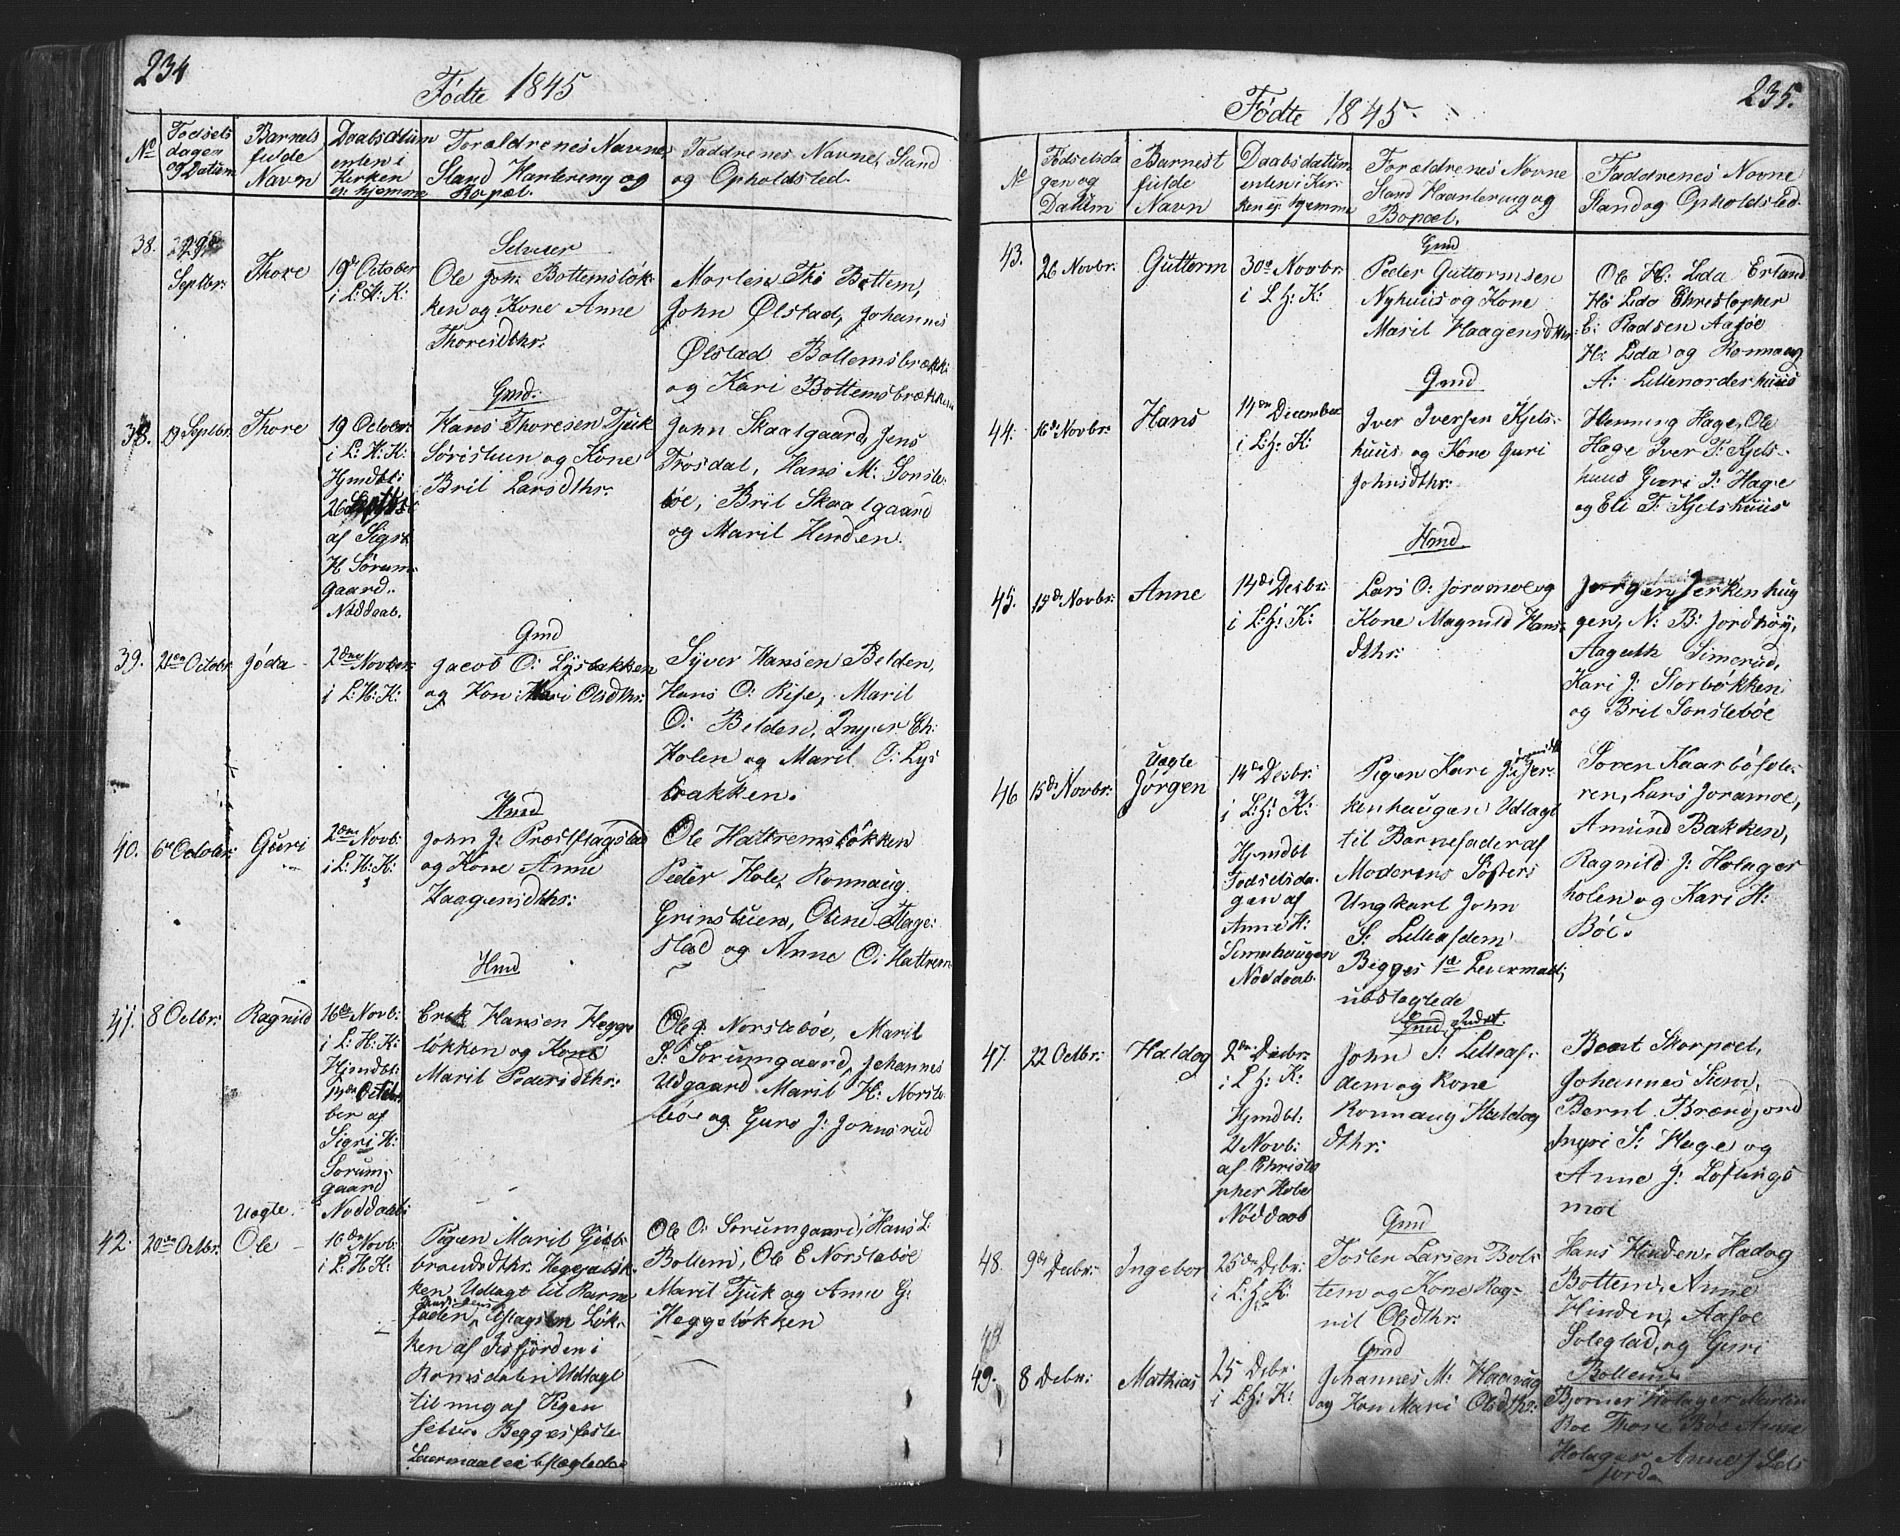 234
Födte 1845
No
Födsels dagen og Datum
Barnets fulde Navn
Daabsdatum enten i Kirken ei hjemme
Foræeldrenes Navne, Stand Hantering og Bopæl.
Faddrenes Navne, Stand og Opholdsted.
38.
Septbr:
Thore
19d October
i L: H: K:
Selveier
Ole Joh: Bottemsløk-
ken og Kone Anne
Thoresdthr.
Morten Th: Bottem,
John Ølstad, Johannes
Ølstad Bottemsbrækk:
og Kari Bottemsbrækken
38.
19 Septbr:
Thore
19 October
i L: H: K:
Hjmdbt:
af Sigri
H Sørum-
gaard..
Nøddaab.
Gmd.
Hans Thoresen Tjuk
Søristuen og Kone
Brit Larsdthr.
John Skaalgaard, Jens
Trosdal, Hans M: Sonste-
böe, Brit Skaalgaard
og Marit Hinden.
39.
21en Octobr
Jøda
2den Novber:
i L: H: K:
Gmd
Jacob O: Lysbakken
og Kon: Mari Olsdthr.
Syver Hansen Belden,
Hans O: Rise, Marit
O: Belden, Inger Ch:
Holen og Marit O: Lys
bakken.
40.
6te October:
Guri
2den Novb:
i L: H: K:
Hmd
John J: Præstflagstad
og Kone Anne
Haagensdthr:
Ole Hattremsløkken
Peder Hole, Ronnaug
Grinstuen, Oline Flage-
stad og Anne O: Hattrem
41.
8 Octbr:
Ragnild
16de Novb:
i L: H: K:
Hjmdbt:
ber af
Sigri H:
Sorum-
gaard
Nöddaab:
Hmd
Erik Hansen Hegge
løkken og Kone
Marit Pedersdthr:
Ole J: Norsteböe, Marit
S: Sorumgaard, Johannes
Udgaard. Marit H: Norste
böe og Guro J: Johnsrud
42.
20de Octbr.
Uægte
Ole
16de Novb:
i L: H: K:
Pigen Marit Guld-
brandsdthr. Heggeløk-
ken Udlagt til Barne
faderen Løk-
ken af Isfjorden i
Romsdalen Udlagt
til mig af Pigen
selv. Begges første
Leiermaal ei beslægtede
Ole O: Sorumgaard, Hans L:
Bottem, Ole E. Norsteböe
Marit Tjuk og Anne G:
Heggeløkken
235.
Födte 1845.
No
Födselsda gen og Datum
Barnest fulde Navn
Daabsdatum enten i Kirken ej: hjemme
Foræeldrenes Navne Stand Haantering og Bopæel.
Faddrenes Navne Stand og Opholdsted.
43.
26 Novbr:
Guttorm
30te Novbr:
i L: H: K:
Gmd
Peder Guttormsen
Nyhuus og Kone
Marit Haagensdthr:
Ole H: Lida Erland
H: Lida Christopher
E: Madsen Aasøe
H: Lida og Ronnaug
A: Lillenorderhuus
44.
16de Novbr:
Hans
14den December
i L: H: K:
Gmd
Iver Iversen Kjels-
huus og Kone Guri
Johnsdthr:
Henning Hage, Ole
Hage Iver T: Kjels-
huus Guri J: Hage
og Eli T: Kjelshuus
45.
15de Novbr:
Anne
14de Desbr:
i L: H: K:
Hmd.
Lars O: Joramoe og
Kone Magnild Hans-
dthr:
Jørgen Jerkenhug
gen, N: B: Jordhöy,
Aaguth Simerud,
Kari J: Storbøkken
og Brit Sonsteböe
46
15de Novbr:
Uægte
Jørgen
14de Desbr:
i L: H: K:
Hjmdbt
Fødselsda-
gen af
Anne H:
Simenhaugen
Nøddaab.
Pigen Kari Jer-
kenhaugen Udlagt
til Barnefader af
Moderens Søster:
Ungkarl John
S: Lilleasdem
Begges 1te Leiermaal;
ubslægtede
Søren Kaarbøsde-
ren, Lars Joramoe,
Amund Bakken,
Ragnild J: Holager
holen og Kari H:
Böe.
47.
22 Octbr:
Haldog
2den Debr:
i L: H: K:
Hjmdbt.
2 Novb:
af Christo
pher Hole
Nöddaab
John S: Lilleas-
dem og Kone
Ronnaug Haldog
dthr:
Bent Skorpoel,
Johannes Siem,
Bernt Brændjord
Ingri S: Hage og
Anne J: Loftings
moe
48.
9de Debr:
Ingebor
25de Debr:
i L: H: K:
Gmd
Tosten Larsen Bot-
tem og Kone Rag-
nil Olsdthr:
Hans Hinden, Hadog
Bottem, Anne
Hinden, Aasoe
Soleglad, og Guri
Bottem.
49.
8 Debr:
Mathias
25 Debr:
i L: H: K:
Gmd
Johannes M: Haavug
og Kon Mari Olsdthr:
Bjorner Holager Morten
Boe Thore Boe Anne
Holager Anne J Sels
jorda